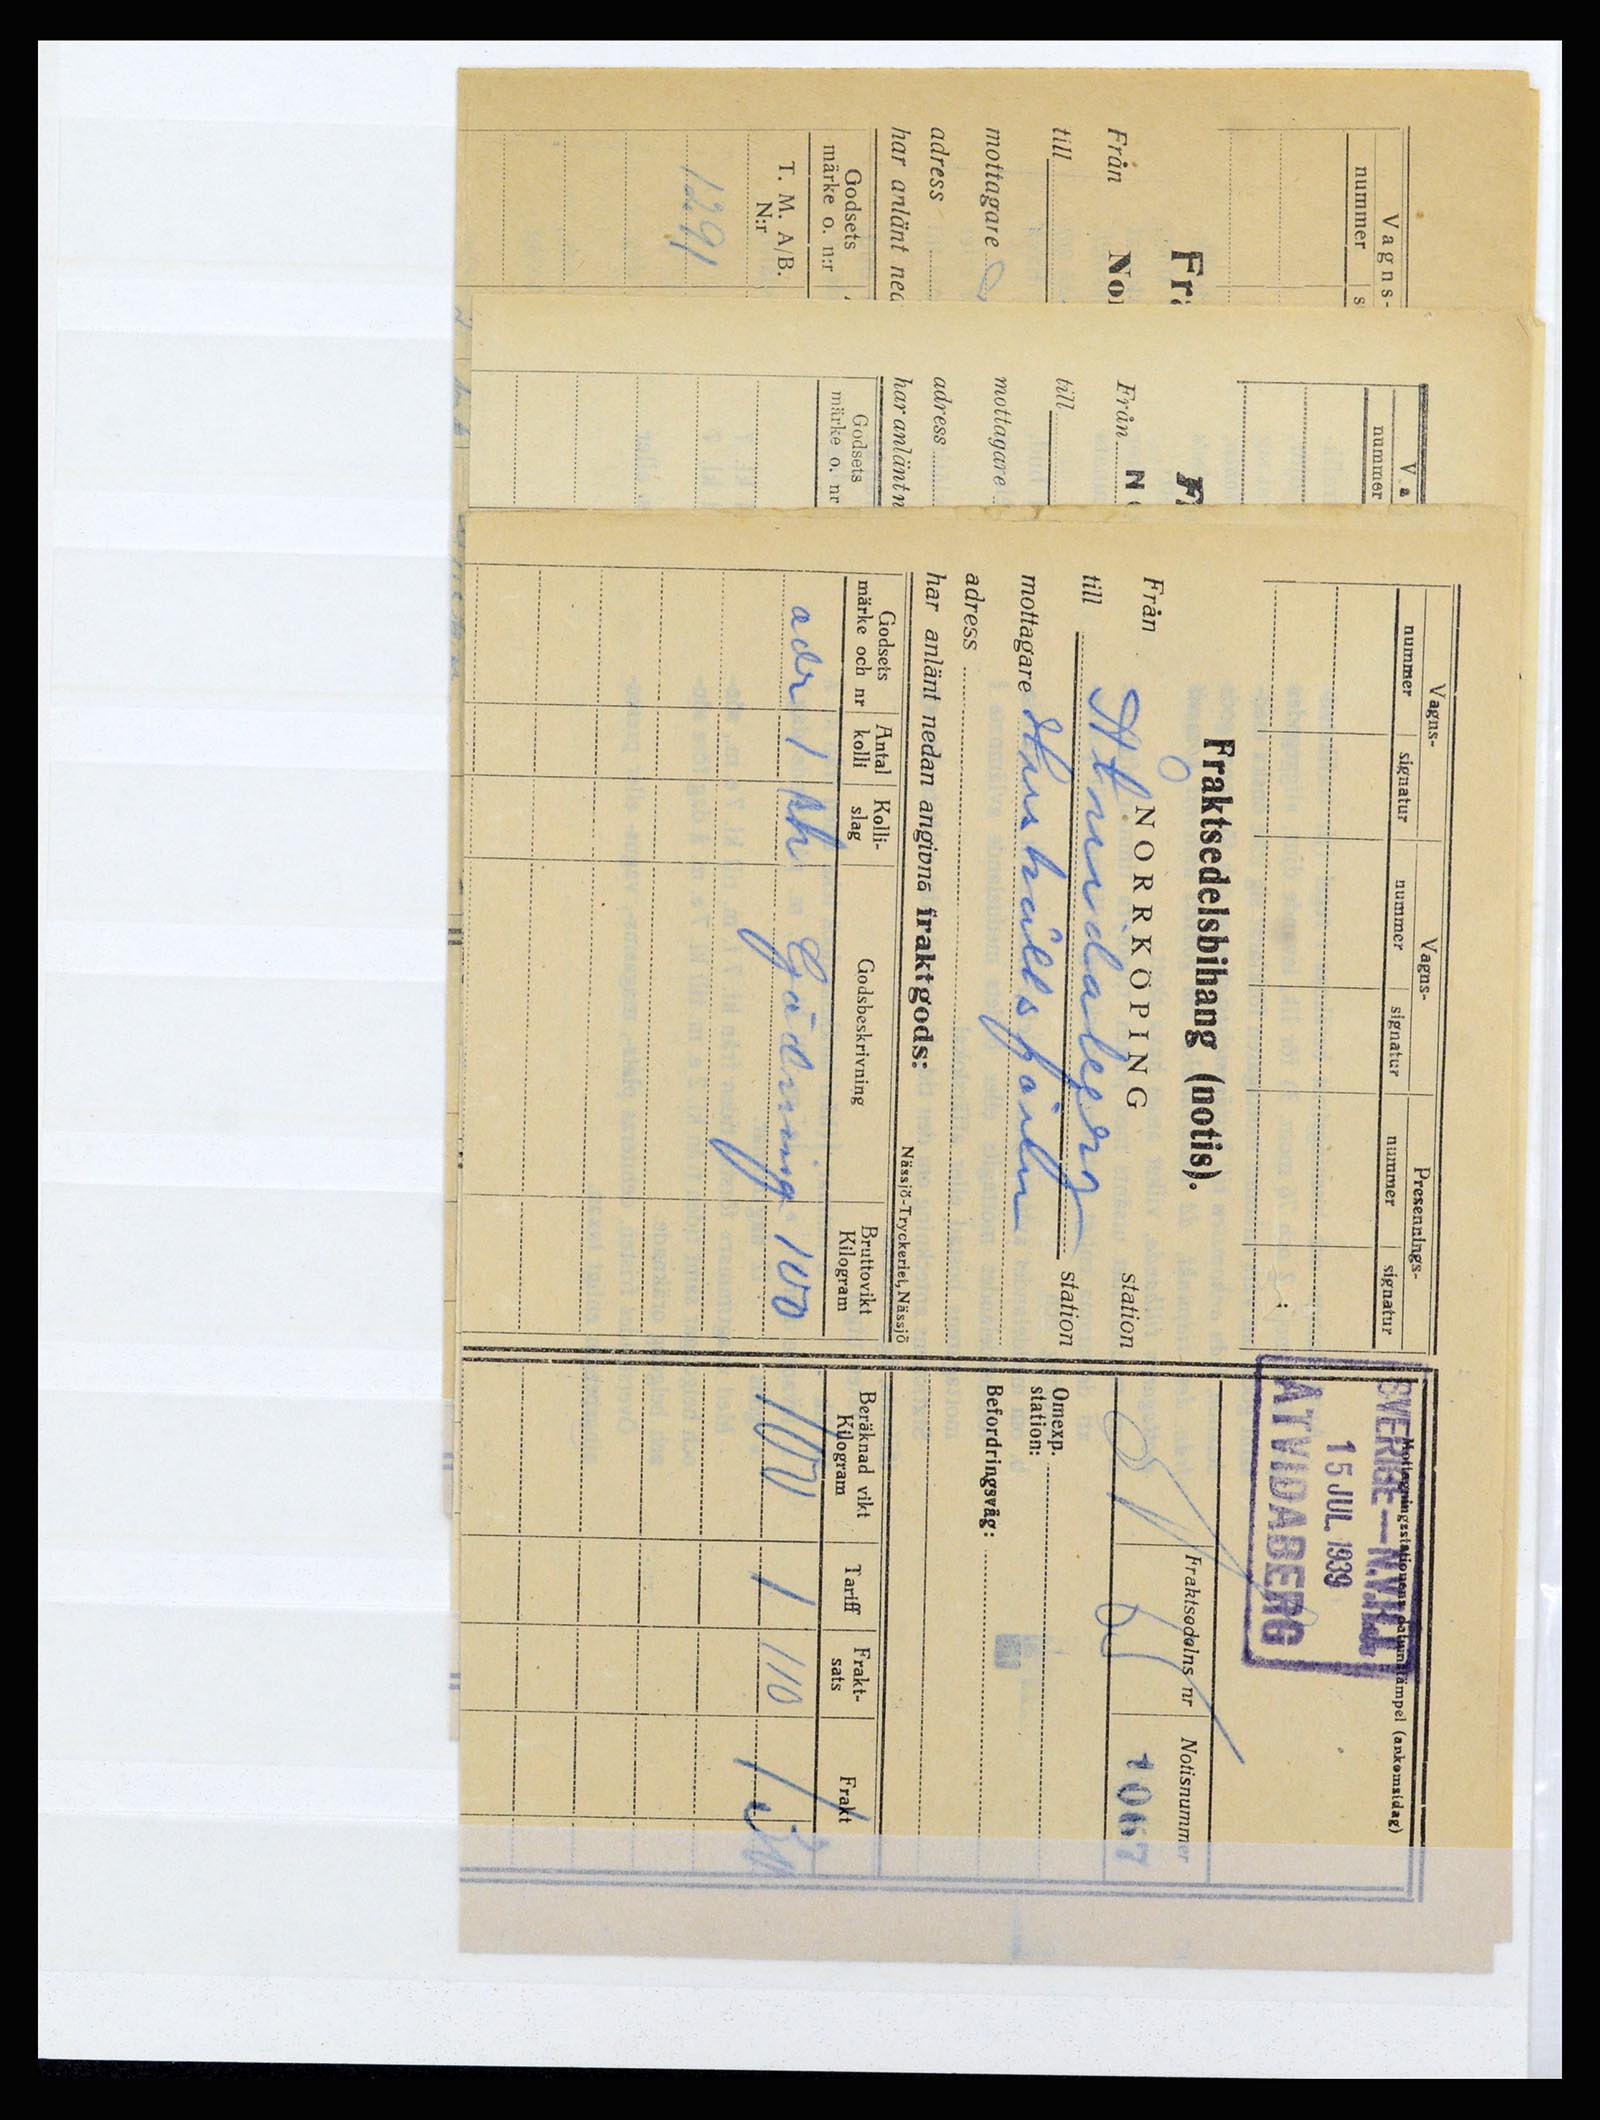 Vagns-
nummer
Fra
Från Nor
till
mottagare
adress
har anlänt ned
Godsets
märke o. n:r
T. M. A/B.
N:r
1291
Va
nummer
Från
till
mottagare
adress
har anlänt n
Godsets
märke o. nr
Vagns-
nummer signatur
Vagns-
nummer signatur
Presennings-
nummer signatur
Mottagningsstationens datumstämpel (ankomstdag)
SVERIGE—N.V.H.J.
15 JUL. 1939
ÅTVIDABERG
Fraktsedelsbihang (notis).
Från NORKÖPING station
till Åtvidaberg station
mottagare
adress
har anlänt nedan angivna fraktgods:
Nässjö-Tryckeriet, Nässjö
Fraktsedelns nr
Notisnummer
1067
Omexp.
station:
Befordringsväg:
Godsets
märke och nr
Antal
kolli
Kolli-
slag
Godsbeskrivning
Bruttovikt
Kilogram
Beräknad vikt
Kilogram
Tariff
Frakt-
sats
Frakt
adr 1 100 100 1 110